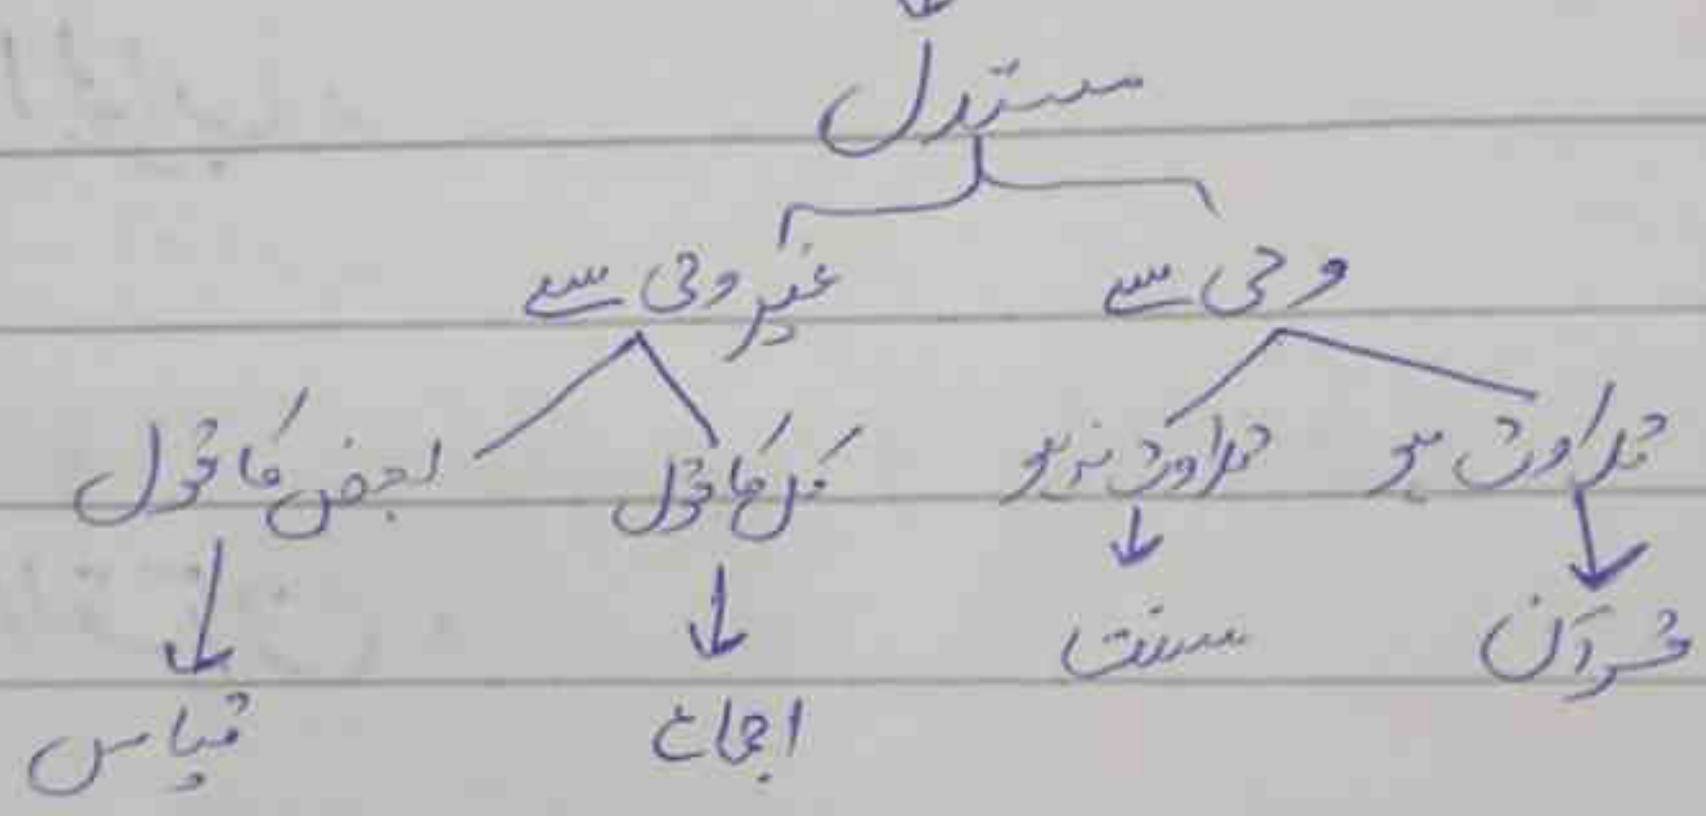 مستدل
وحی سے غیر وحی سے
تلاوت ہو تلاوت نہ ہو کل کا قول بعض کا قول
قرآن سنت اجماع قیاس